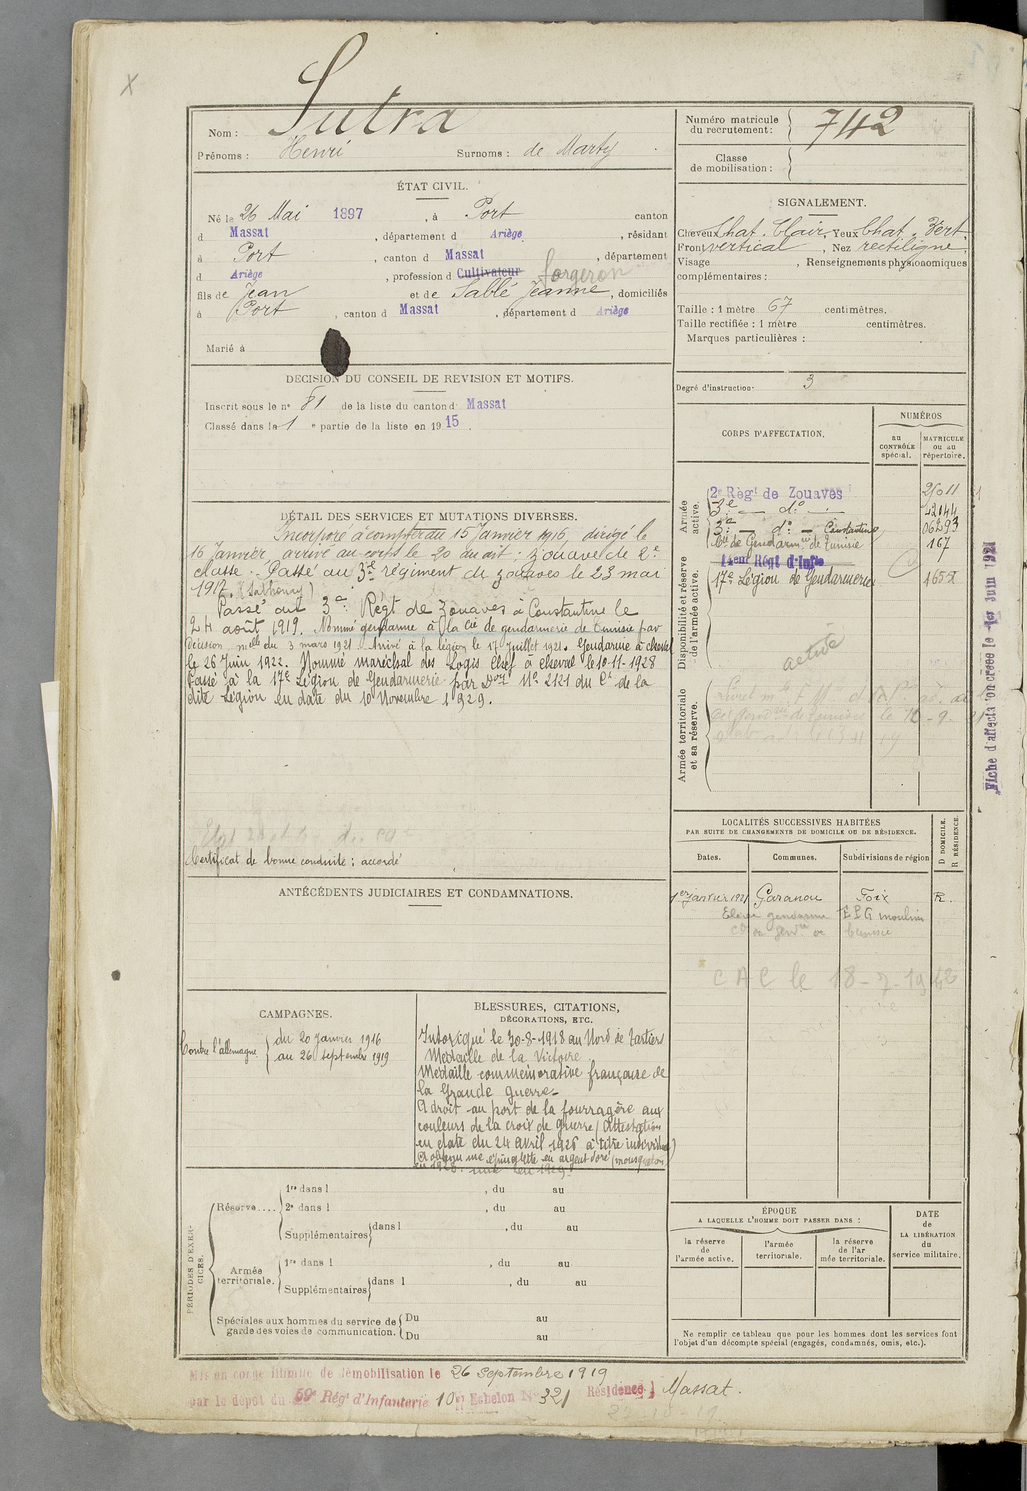 Sutra
Nom :
Prénoms : Henri Surnoms : de Marty
ÉTAT CIVIL.
Né le 26 Mai 1897, à Port canton
d Massat, département d Ariège, résidant
à Port, canton d Massat, département
d Ariège, profession d Cultivateur forgeron
fils de Jean et de Sablé Jeanne, domiciliés
à Port, canton d Massat, département d Ariège
Marié à
DÉCISION DU CONSEIL DE REVISION ET MOTIFS.
Inscrit sous le n° 81 de la liste du canton d Massat
Classé dans la 1 e partie de la liste en 1915.
DÉTAIL DES SERVICES ET MUTATIONS DIVERSES.
Incorporé à compter du 15 Janvier 1916, dirigé le
16 Janvier arrivé au corps le 20 du dit : zouave de 2e
classe. Passé au 3e régiment de zouaves le 23 mai
1917.
Passé au 3e Régt de Zouaves à Constantine le
24 août 1919. Nommé gendarme à la Cie de gendarmerie de Tunisie par
décision melle du 3 mars 1921. Arrivé à la légion le 17 Juillet 1921. Gendarme à cheval
le 26 Juin 1922. Nommé maréchal des Logis Chef à cheval le 10-11-1928
Passé à la 17e Légion de Gendarmerie par Don N° 2121 du Ct de la
dite Légion en date du 10 Novembre 1929.
Certificat de bonne conduite : accordé
ANTÉCÉDENTS JUDICIAIRES ET CONDAMNATIONS.
CAMPAGNES.
Contre l'allemagne du 20 Janvier 1916
au 26 septembre 1919
BLESSURES, CITATIONS,
DÉCORATIONS, ETC.
Intoxiqué le 30-8-1918 au Nord de Tartiers
Médaille de la Victoire
Médaille commémorative française de
la Grande guerre
A droit au port de la fourragère aux
couleurs de la croix de guerre (Attestation
en date du 24 avril 1926 à titre individuel)
A obtenu une épinglette en argent doré (mousqueton)
en 1928.
PÉRIODES D'EXERCICES.
Réserve.... 1re dans l , du au
2e dans l , du au
Supplémentaires dans l , du au
Armée territoriale. 1re dans l , du au
Supplémentaires dans l , du au
Spéciales aux hommes du service de garde des voies de communication. Du au
Du au
Mis en congé illimité de démobilisation le 26 septembre 1919
par le dépôt du 59e Régt d'Infanterie 10e Echelon N° 321 Résidence : Massat.
Numéro matricule
du recrutement : 742
Classe
de mobilisation :
SIGNALEMENT.
Cheveux Chat. Clair, Yeux Chat. Vert
Front vertical, Nez rectiligne
Visage , Renseignements physionomiques
complémentaires :
Taille : 1 mètre 67 centimètres.
Taille rectifiée : 1 mètre centimètres.
Marques particulières :
Degré d'instruction : 3
CORPS D'AFFECTATION.
NUMÉROS
au CONTRÔLE spécial.
MATRICULE ou au répertoire.
Armée active.
2e Régt de Zouaves
3e — d° —
3e — d° — Constantine 06293
Cie de Gendarmie de Tunisie 167
Disponibilité et réserve de l'armée active.
14eme Régt d'Infie
17e Légion de Gendarmerie
active
Armée territoriale et sa réserve.
Fiche d'affectation créée le 1er Juin 1921
LOCALITÉS SUCCESSIVES HABITÉES
PAR SUITE DE CHANGEMENTS DE DOMICILE OU DE RÉSIDENCE.
D DOMICILE.
R RÉSIDENCE.
Dates. Communes. Subdivisions de région
1er Janvier 1921 Garanou Foix R.
Eleve gendarme
CAC le 18-7-1942
ÉPOQUE
A LAQUELLE L'HOMME DOIT PASSER DANS :
la réserve de l'armée active.
l'armée territoriale.
la réserve de l'ar mée territoriale.
DATE
de
LA LIBÉRATION
du
service militaire.
Ne remplir ce tableau que pour les hommes dont les services font
l'objet d'un décompte spécial (engagés, condamnés, omis, etc.).